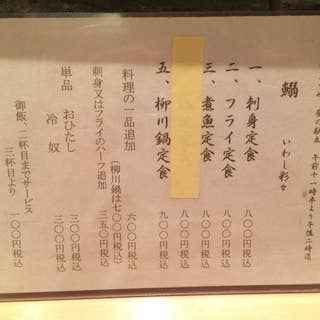 昼の献立 午前十一時半より午後二時迄
鰯 いわし彩々
一、刺身定食 八〇〇円税込
二、フライ定食 八〇〇円税込
三、煮魚定食 八〇〇円税込
八〇〇円税込
五、柳川鍋定食 九〇〇円税込
料理の一品追加 六〇〇円税込
(柳川鍋は七〇〇円税込)
刺身又はフライのハーフ追加 三五〇円税込
単品 おひたし 三〇〇円税込
冷奴 三〇〇円税込
御飯、二杯目までサービス
三杯目より 一〇〇円税込